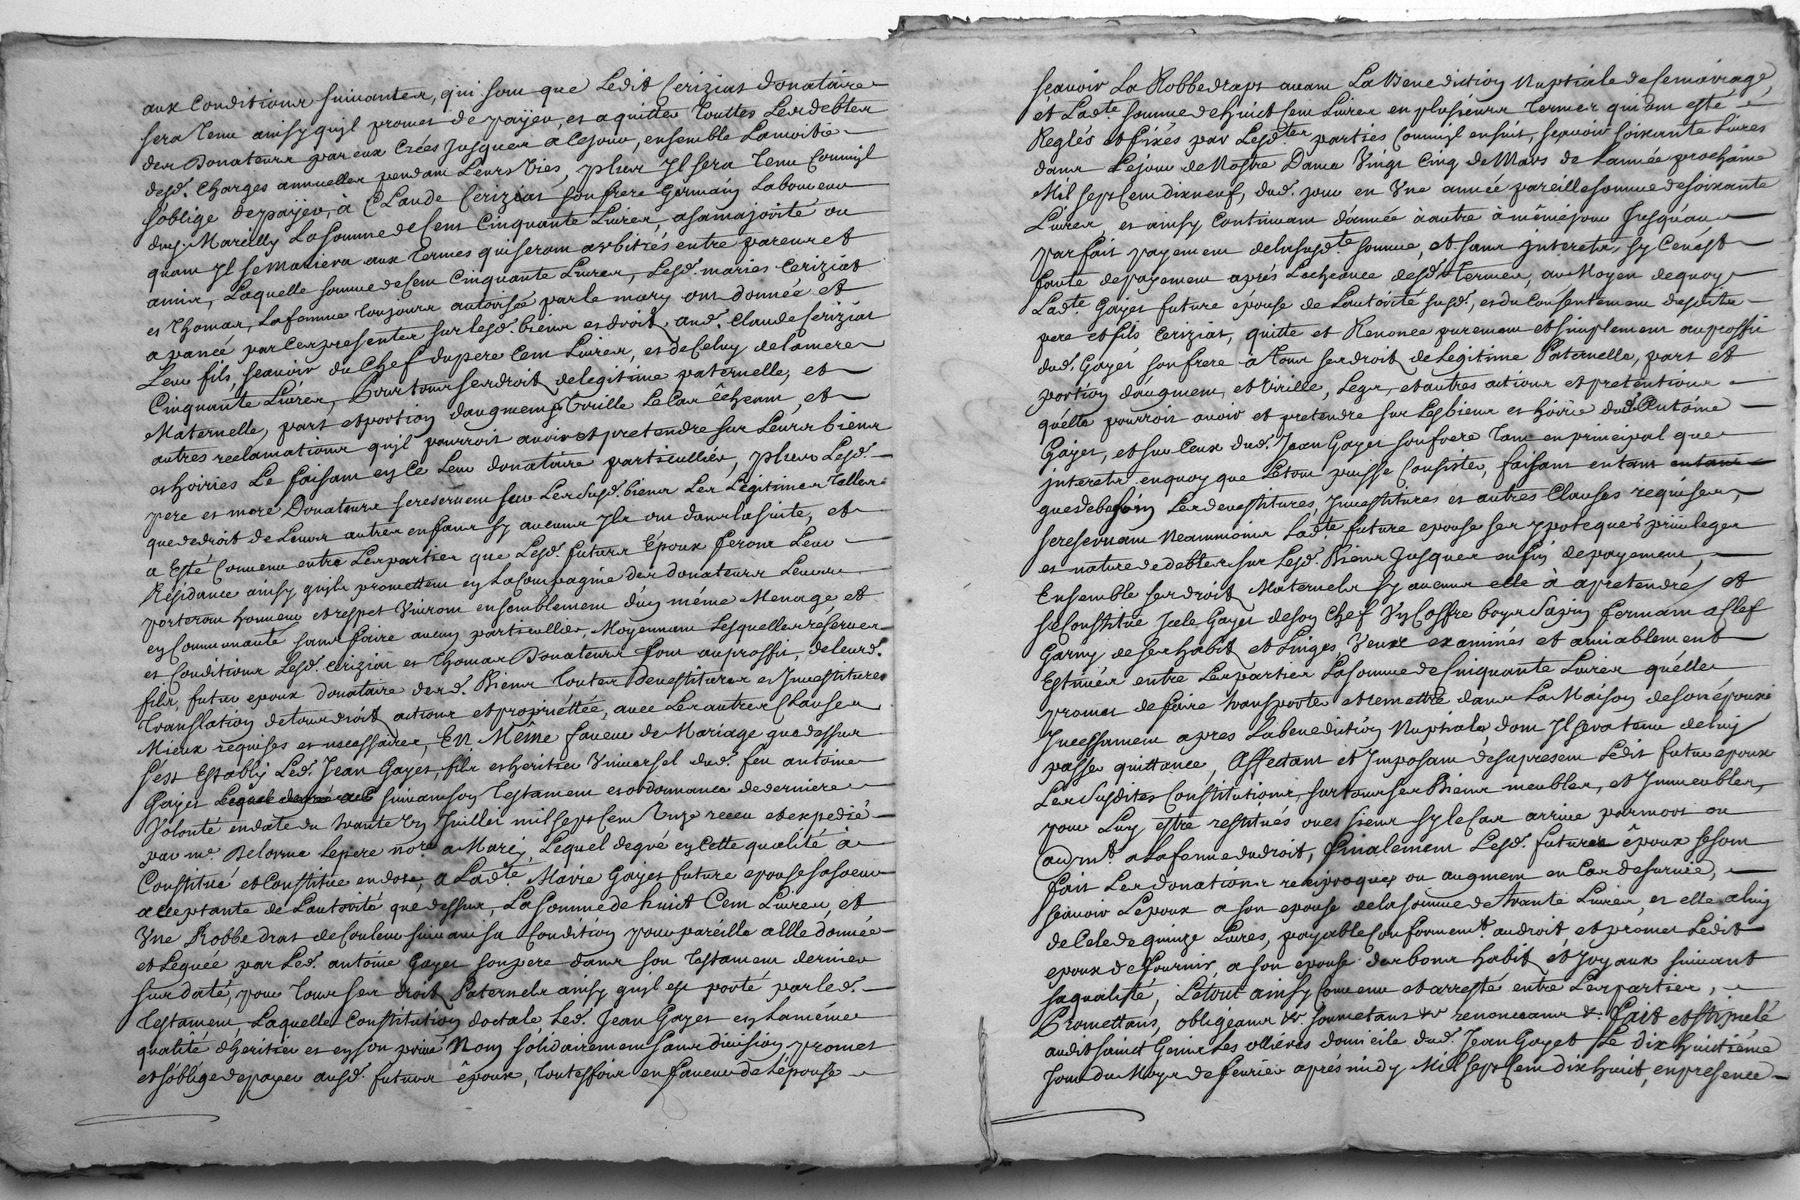 aux Conditions suivantes, qui sont que Ledit Ceriziat donataire
sera tenu ainsy quil promet de payer, et aquitter Touttes Les debtes
des Donateurs par eux Créés Jusques à Cejour, ensemble La moitié
desd. Charges annuelles pendant Leurs Vies, plus Il sera tenu Comm'il
s'oblige de payer, à Claude Ceriziat son frere Germain Laboureur
dud. Marcilly La somme de Cent Cinquante Livres, a sa majorité ou
quant Il se Mariera aux termes qui seront arbitrés entre parens et
amis, Laquelle somme de Cent Cinquante Livres, Lesd. mariés Ceriziat
et Thomas, La femme toujours autorisée par le mary ont donnée et
avancé par Ces presentes sur lesd. biens et droits aud. Claude Ceriziat
Leur fils, scavoir du Chef du pere Cent Livres, et de Celuy de la mere
Cinquante Livres, Pour tous ses droits de legitime paternelle, et
Maternelle, part et portion d'augment et Virille Le Cas êcheant, et
autres reclamations qu'il pourroit avoir et pretendre sur Leurs biens
et hoiries Le faisant en Ce Leur donataire particullier, plus Lesd.
pere et mere Donateurs se reservent sur Les susd. biens Les Legitimes telles
que de droit de Leurs autres enfans sy aucuns Ils ont dans la suite, et
a Esté Convenu entre Les parties que Lesd. futurs Epoux feront Leur
Residance ainsy quils promettent en La Compagnie des donateurs Leurs
porteront honneur et respet Vivront ensemblement d'un même Menage et
en Communauté sans faire aucun particullier, Moyennant Lesquelles réserves
et Conditions Lesd. Ceriziat et Thomas Donateurs font au proffit, de leurd.
fils, futur epoux donataire desd. Biens toutes Devestitures et Investitures
Translation de tous droits actions et proprietée, avec Les autres Clauses
Mieux requises et necessaires, En Même faveur de Mariage que dessus
s'est Estably Led. Jean Gayet fils et heritier Universel dud. feu antoine
Gayet suivant son Testament et ordonnance de derniere
Volonté en date du trante Un Juillet mil sept Cent Unze receu et expedié
par me. Delorme Lepere nore. a Marcy, Lequel de gré en Cette qualité à
Constitué et Constitue en dote, a Ladte. Marie Gayet future epouse sa soeur
acceptante de L'autorité que dessus, La somme de huict Cent Livres, et
Une Robbe drat de Couleur suivant sa Condition pour pareille a Elle donnée
et Leguée par Led. antoine Gayet son pere dans son Testament dernier
sus daté, pour tous ses droits Paternels ainsy quil est porté par led.
Testament Laquelle Constitution doctale Led. Jean Gayet en La même
qualité d'heritier et en son privé Nom solidairement sans division promet
et s'oblige de payer ausd. futurs êpoux, touteffois en faveur de L'épouse
scavoir La Robbe drapt avant La Benediction Nuptiale de ce mariage,
et Ladte. somme de huict Cent Livres en plusieurs termes qui ont esté
Reglés et fixés par Lesdtes. parties Comm'il ensuit, scavoir soixante Livres
dans Le jour de Nostre Dame Vingt Cinq de Mars de L'année prochaine
Mil sept Cent dix neuf, dud. jour en Une année pareille somme de soixante
Livres, et ainsy Continuant d'année à autre à même jour Jusqu'au
parfait payement de la susdte. somme, et sans interets, sy Ce n'est
faute de payement après L'echeance desd. Termes, au Moyen de quoy
Ladte. Gayet future epouse de L'autorité susd. et du Consentement desdits
pere et fils Ceriziat, quitte et Renonce purement et simplement au proffit
dud. Gayet son frere à tous ses droits de Legitime Paternelle, part et
portion d'augment, et Virille, Legs, et autres actions et pretentions
qu'elle pourroit avoir et pretendre sur Les biens et hoirie dud. Antoine
Gayet, et sur Ceux dud. Jean Gayet son frere tant en principal que
interets en quoy que Le tout puisse Consister, faisant en tant
que de besoin Les devestitures, Investitures et autres Clauses requises,
se reservant Neantmoins Ladte. future epouse ses ypoteques privileges
et nature de debtes sur Lesd. Biens Jusques en fin de payement,
Ensemble ses droits Maternels sy aucuns elle à a pretendre, et
se Constitue Icelle Gayet de son Chef Un Coffre boys Sapin fermant a Clef
Garny de ses habits et Linges, Veux examinés et amiablement
Estimés entre Les parties La somme de Cinquante Livres qu'elle
promet de faire transporter et remettre dans La Maison de son époux
Incessament apres La benediction Nuptiale, dont Il sera tenu de luy
passer quittance, Affectant et Imposant des a present Ledit futur epoux
Les susdites Constitutions, sur tous ses Biens meubles, et Immeubles,
pour Luy estre restitués ou es siens sy le Cas arrive par mort ou
audmt. a La forme du droit, finalement Lesd. futures êpoux se sont
fait Les donations reciproques ou augment en Cas de survie,
scavoir L'epoux a son epouse de la somme de trante Livres, et elle a luy
de Cele de quinze Livres, payable Conforment. au droit, et promet Ledit
epoux de fournir a son epouse des bons habits et Joyaux suivant
sa qualité, Le tout ainsy Convenu et arresté entre Les parties,
Promettans, obligeans &. soumettans &. renonceans &. fait et stipulé
audit sainct Genis Les ollieres domicile dud. Jean Gayet Le dix huictième
Jour du Moys de fevrier après midy Mil sept Cent dix huict, en presence